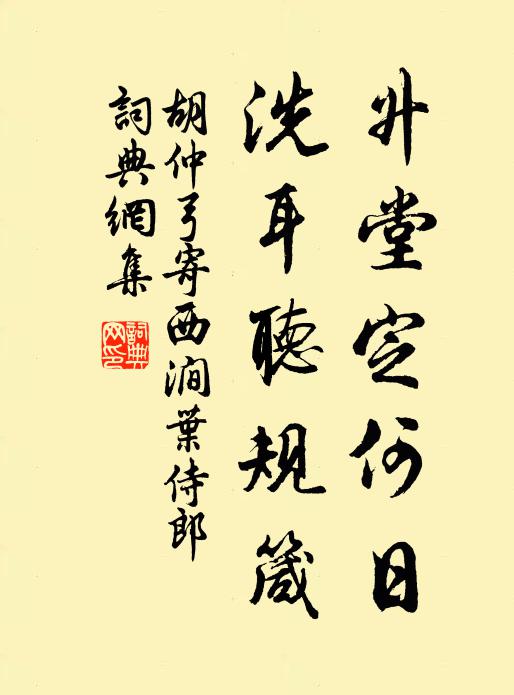 升堂定何日
洗耳聽規箴
胡仲弓寄西澗葉侍郎
詞典網集
詞典網印